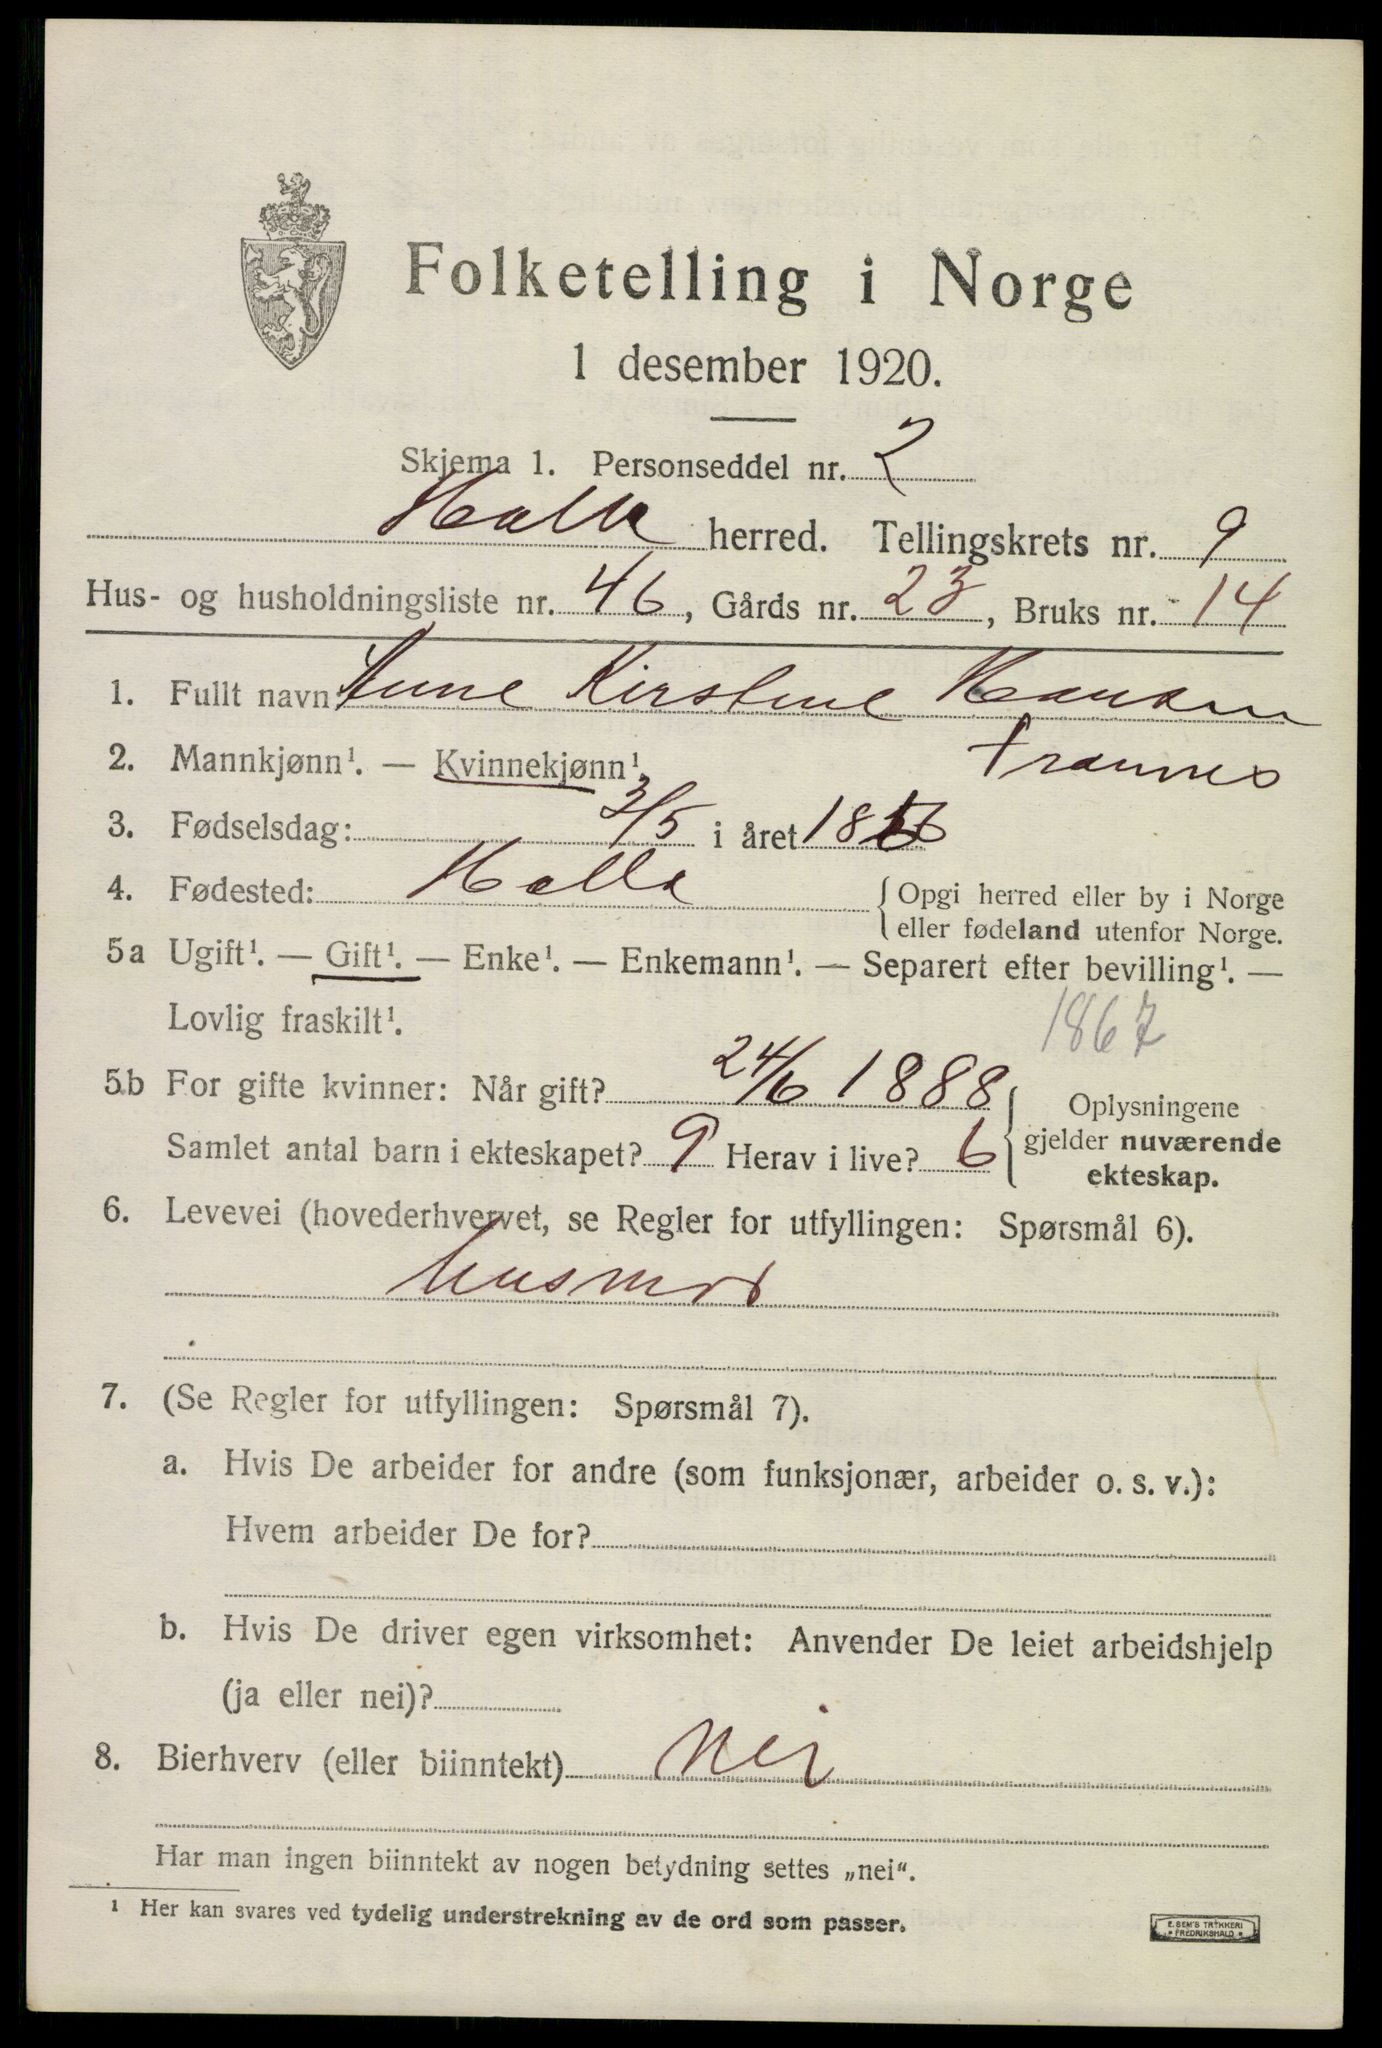 Folketelling i Norge
1 desember 1920.
Skjema 1. Personseddel nr. 2
Holla herred. Tellingskrets nr. 9
Hus- og husholdningsliste nr. 46, Gårds nr. 23, Bruks nr. 14
1. Fullt navn: Anne Kirstine Hansen
2. Mannkjønn¹. — Kvinnekjønn¹.
3. Fødselsdag: 3/5 i året
4. Fødested: Holla {Opgi herred eller by i Norge
eller fødeland utenfor Norge.
5a Ugift¹. — Gift¹. — Enke¹. — Enkemann¹. — Separert efter bevilling¹. —
Lovlig fraskilt¹.
1867
5b For gifte kvinner: Når gift? 24/6 1888
Samlet antal barn i ekteskapet? 9 Herav i live? 6
{Oplysningene
gjelder nuværende
ekteskap.
6. Levevei (hovederhvervet, se Regler for utfyllingen: Spørsmål 6).
husmor
7. (Se Regler for utfyllingen: Spørsmål 7).
a. Hvis De arbeider for andre (som funksjonær, arbeider o. s. v.):
Hvem arbeider De for?
b. Hvis De driver egen virksomhet: Anvender De leiet arbeidshjelp
(ja eller nei)?
8. Bierhverv (eller biinntekt) Nei
Har man ingen biinntekt av nogen betydning settes „nei“.
¹ Her kan svares ved tydelig understrekning av de ord som passer.
E. SEM'S TRYKKERI
* FREDRIKSHALD *